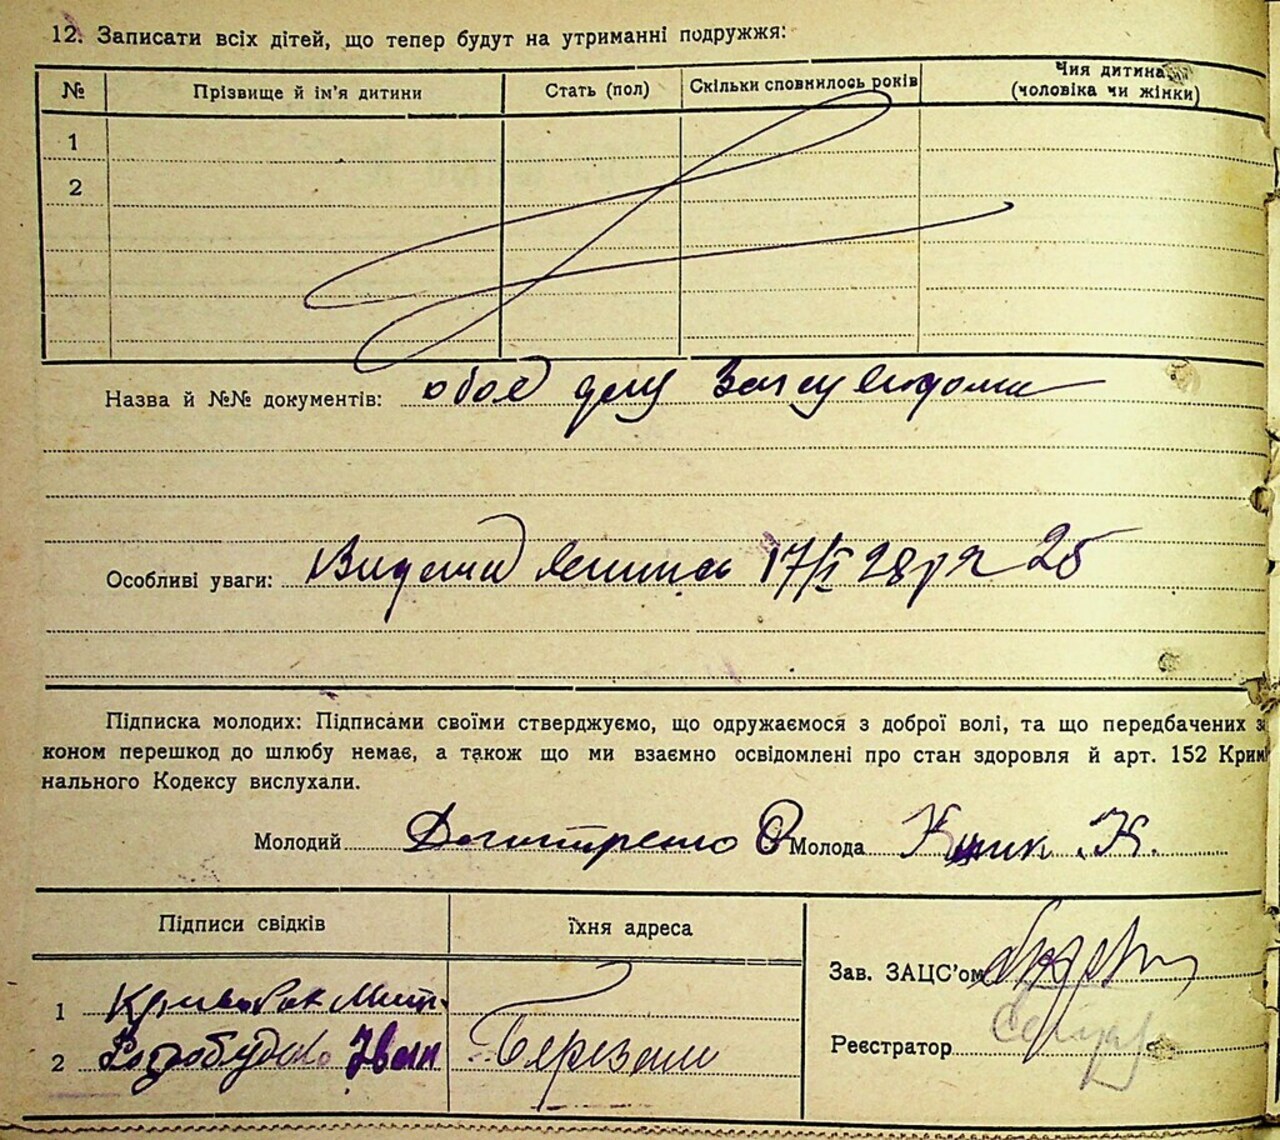 12. Записати всіх дітей, що тепер будут на утриманні подружжя:
№ Прізвище й ім'я дитини Стать (пол) Скільки сповнилось років Чия дитина (чоловіка чи жінки)
1
2
Назва й №№ документів: обоє
Особливі уваги: 17/I 28 р 25
Підписка молодих: Підписами своїми стверджуємо, що одружаємося з доброї волі, та що передбачених за
коном перешкод до шлюбу немає, а також що ми взаємно освідомлені про стан здоровля й арт. 152 Крим
нального Кодексу вислухали.
Молодий Молода К.
Підписи свідків їхня адреса
Зав. ЗАЦС'ом
1
Реєстратор
2 Іван Березань